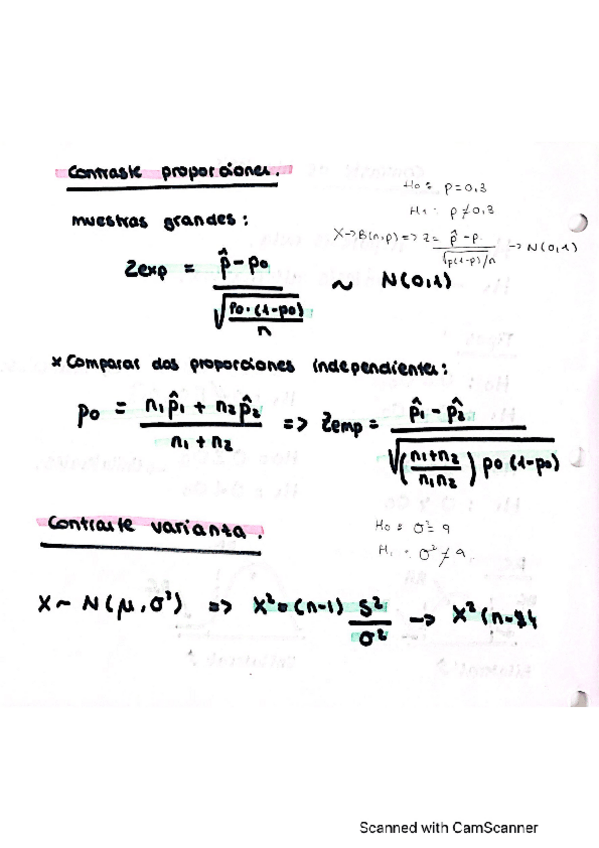 Contraste proporciones.
H₀: p=0,3
H₁: p≠0,3
muestras grandes:
X→B(n,p) => Z = (p̂-p) / √(p(1-p)/n) → N(0,1)
Zexp = (p̂-p₀) / √(p₀·(1-p₀)/n) ~ N(0,1)
* Comparar dos proporciones independientes:
p₀ = (n₁p̂₁ + n₂p̂₂) / (n₁+n₂) => Zemp = (p̂₁-p̂₂) / √(((n₁+n₂)/(n₁n₂)) p₀·(1-p₀))
Contraste varianza.
H₀: σ²=9
H₁: σ²≠9
X~ N(μ,σ²) => X² = (n-1) S²/σ² → X²(n-1)
Scanned with CamScanner